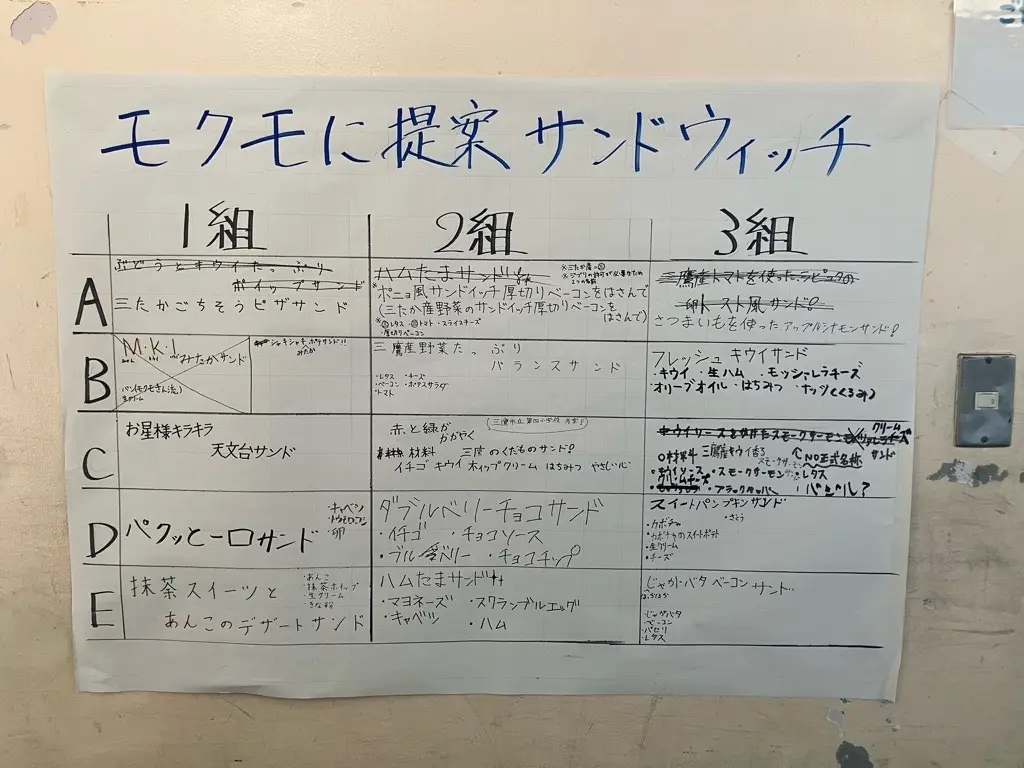 モクモに提案サンドウィッチ
1組
2組
3組
A
ぶどうとキウイたっぷり
ホイップサンド
三たかごちそうピザサンド
ハムたまサンド
※三たか産→
ポニョ風サンドイッチ厚切りベーコンをはさんで
(三たか産野菜のサンドイッチ厚切りベーコンをはさんで)
レタス トマト・スライスチーズ
・厚切りベーコン
三鷹産トマトを使ったラピュタの
トースト風サンド!
さつまいもを使ったアップルシナモンサンド!
B
M・K・I みたかサンド
パン(モクモさん流)
生クリーム
シャキシャキポテサンド!!
みたか
三鷹産野菜たっぷり
バランスサンド
・レタス ・チーズ
・ベーコン ・ポテトサラダ
・トマト
フレッシュキウイサンド
・キウイ ・生ハム ・モッツァレラチーズ
・オリーブオイル ・はちみつ ・ナッツ(くるみ)
C
お星様キラキラ
天文台サンド
赤と緑が
かがやく
材料 三度のくだものサンド!
イチゴ キウイ ホイップクリーム はちみつ やさしい心
キウイソースをかけたスモークサーモン
クリーム
チーズ
サンド
○材料 三鷹産キウイ香る
スモークサーモン
No正式名称
・キウイソース ・スモークサーモン ・レタス
クリームチーズ
・ブラックペッパー
バジル?
D
パクッと一口サンド
・キャベツ
・卵
ダブルベリーチョコサンド
・イチゴ ・チョコソース
・ブルーベリー ・チョコチップ
スイートパンプキンサンド
・さとう
・カボチャ
・カボチャのスイートポテト
・生クリーム
・チーズ
E
抹茶スイーツと
あんこのデザートサンド
・あんこ
・抹茶ホイップ
・生クリーム
・きな粉
ハムたまサンド
・マヨネーズ ・スクランブルエッグ
・キャベツ ・ハム
じゃがバタベーコンサンド
はちみつ
・じゃがバタ
・ベーコン
・パセリ
・レタス